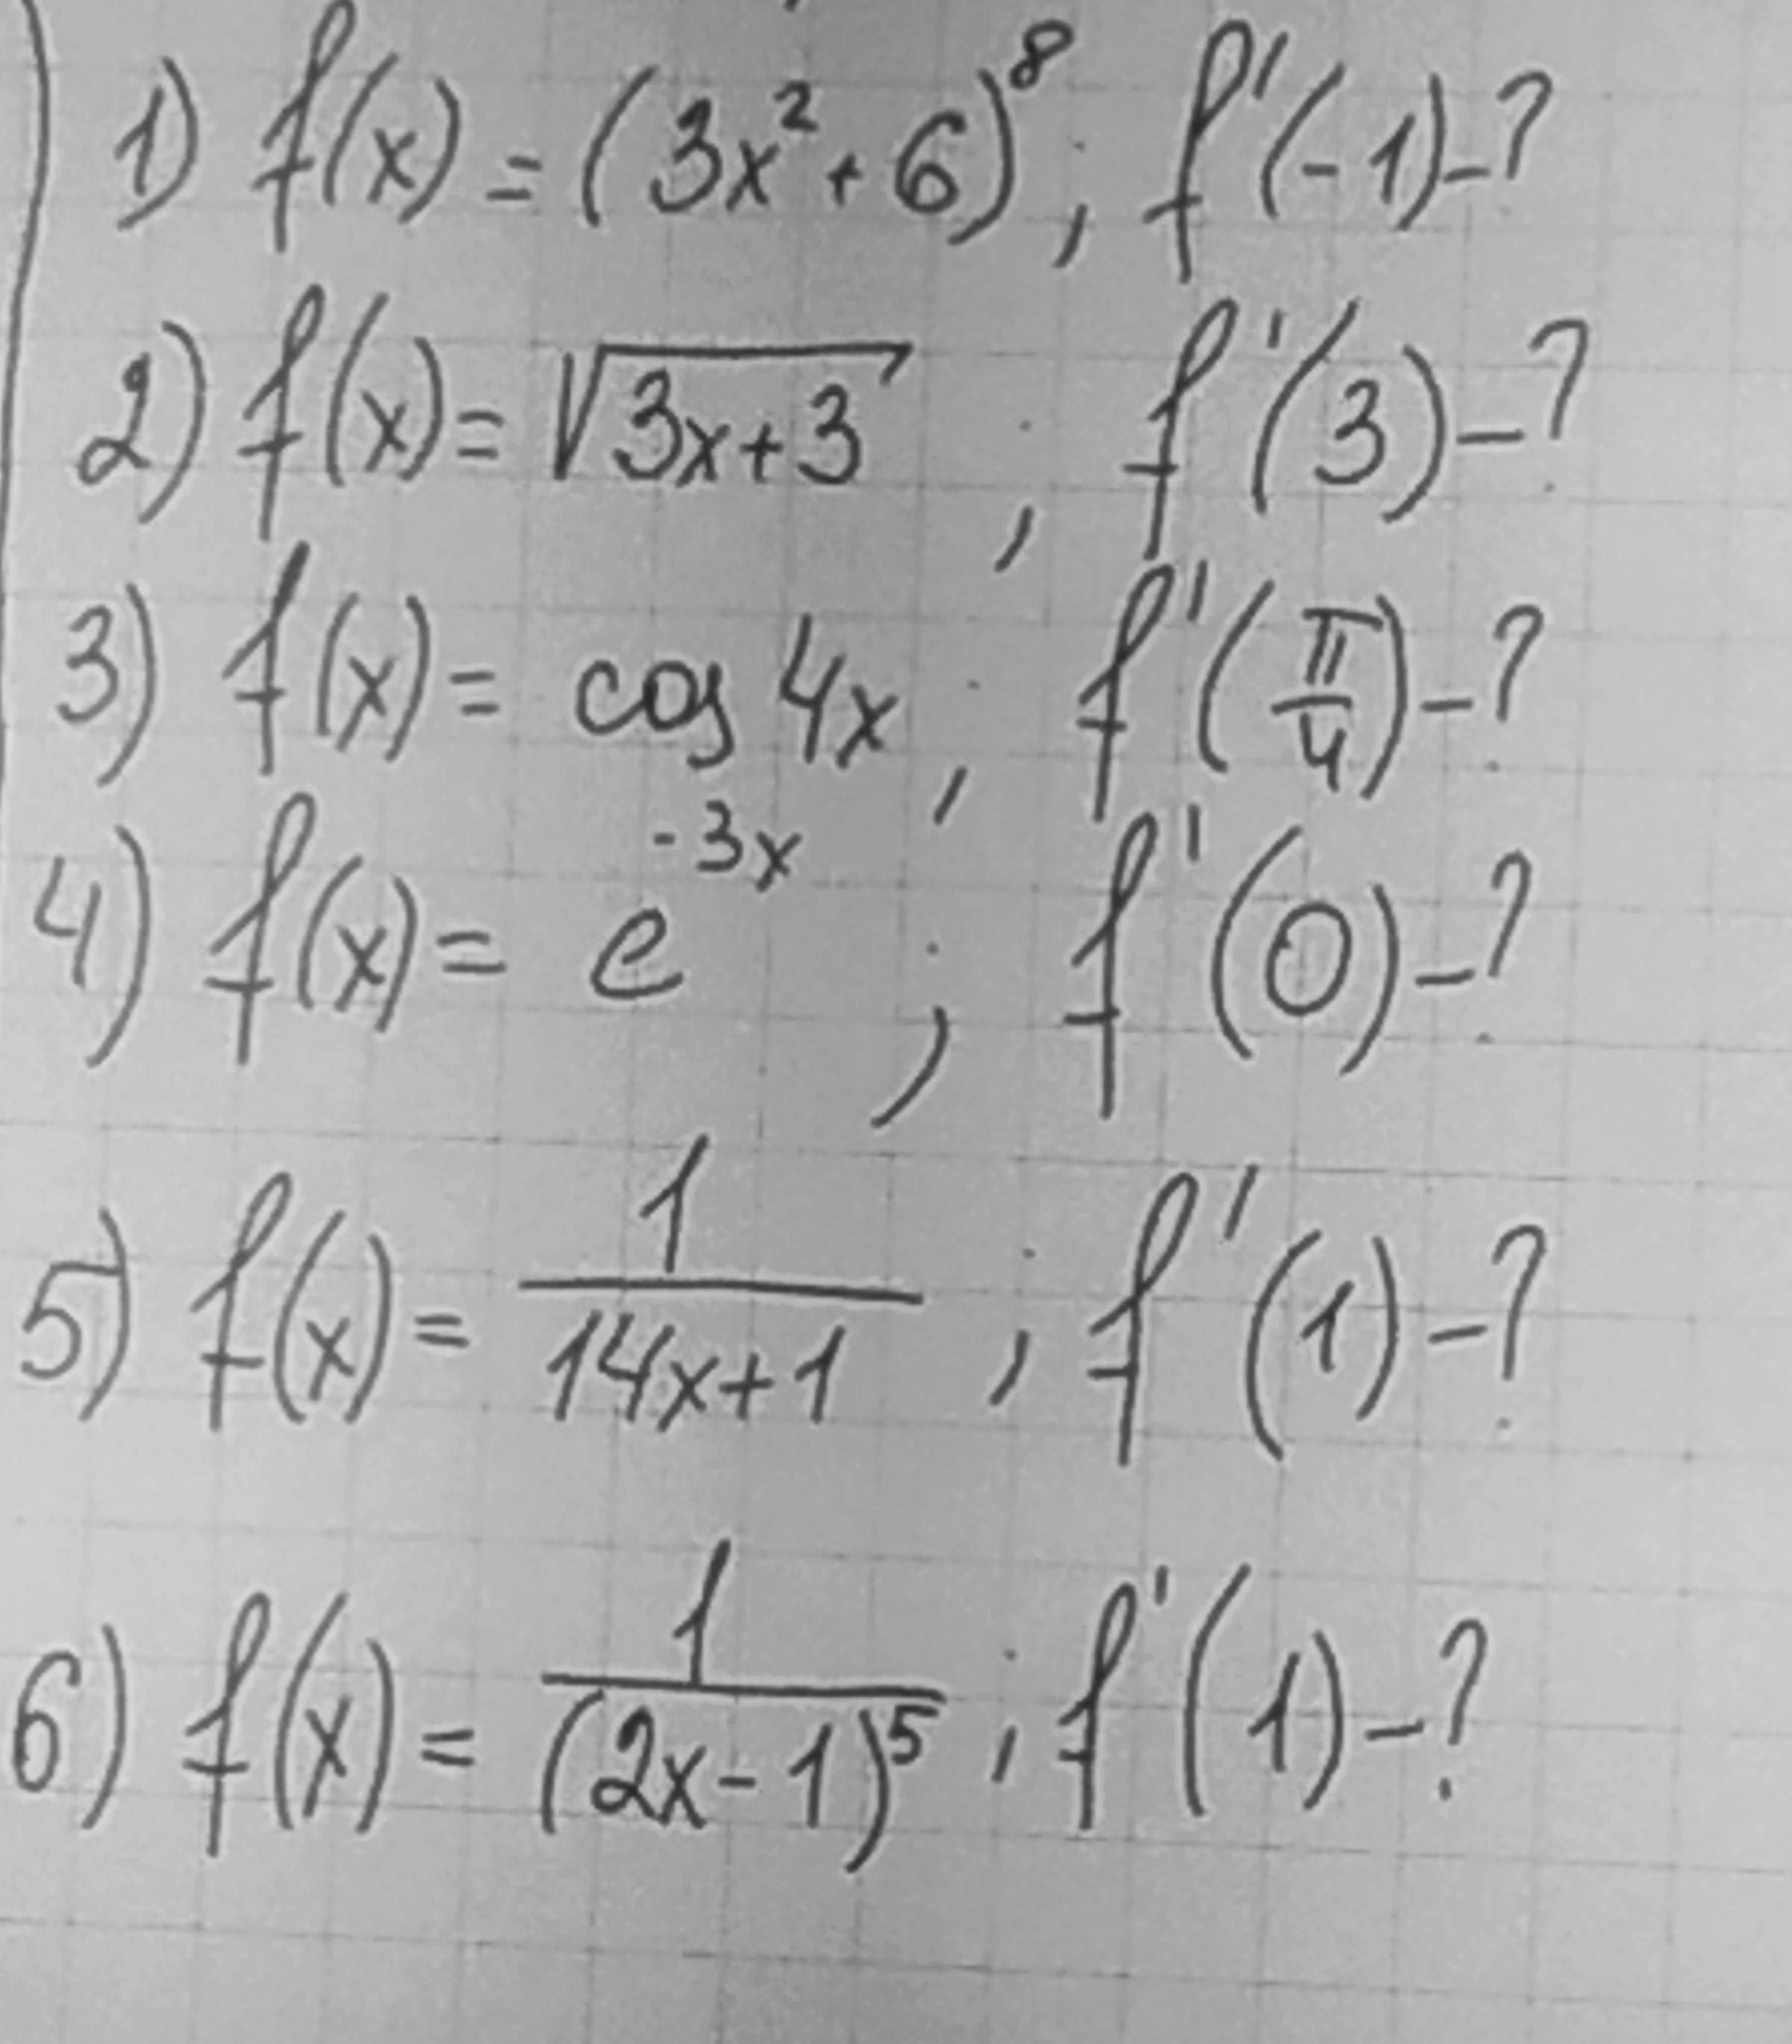 1) f(x) = (3x²+6)⁸; f'(-1)-?
2) f(x) = √(3x+3); f'(3)-?
3) f(x) = cos 4x; f'(π/4)-?
4) f(x) = e^(-3x); f'(0)-?
5) f(x) = 1/(14x+1); f'(1)-?
6) f(x) = 1/(2x-1)⁵; f'(1)-?